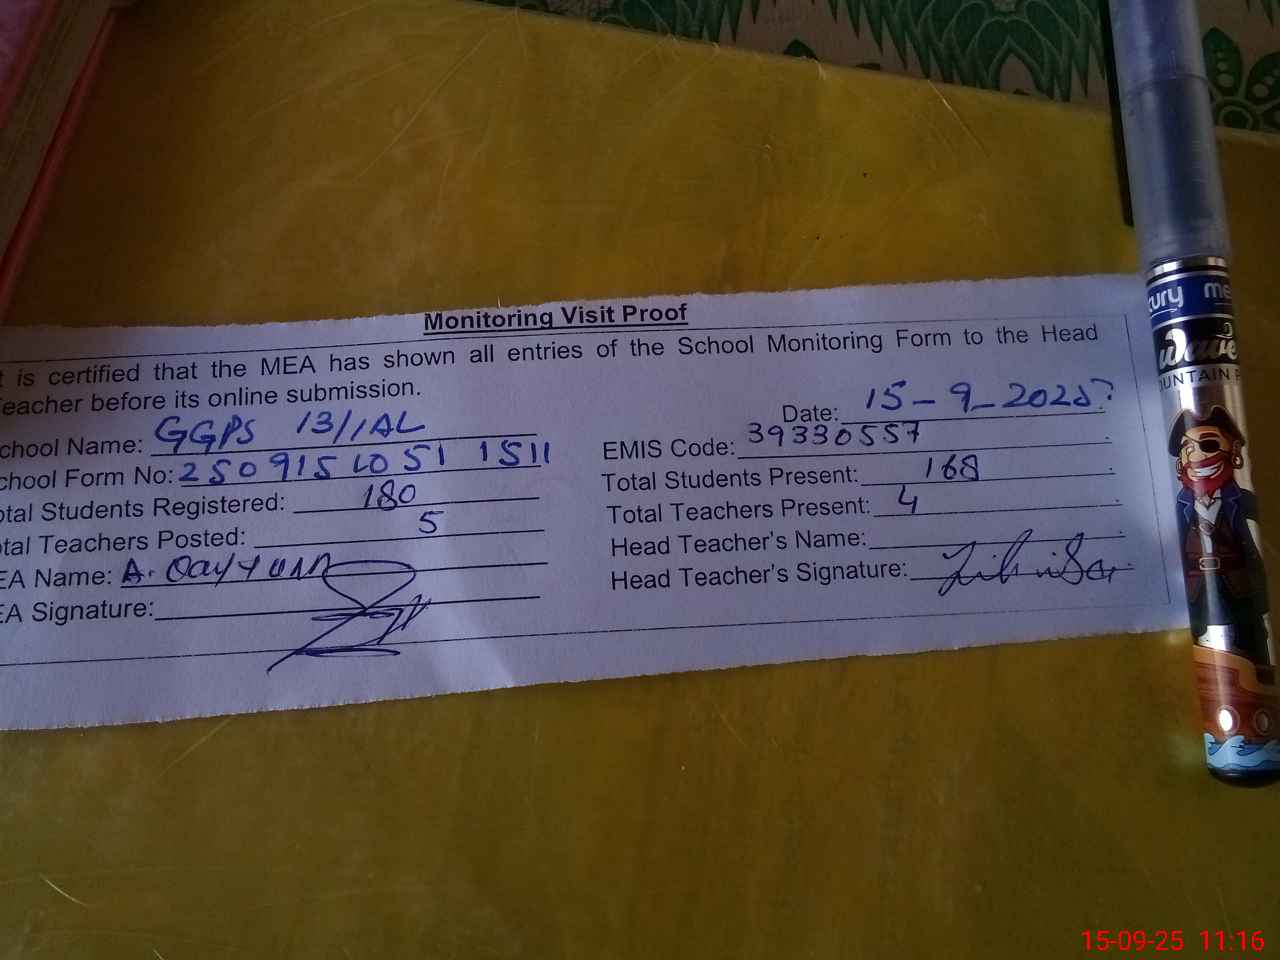 Monitoring Visit Proof
t is certified that the MEA has shown all entries of the School Monitoring Form to the Head
eacher before its online submission.
Date: 15-9-2025
chool Name: GGPS 13/1AL
EMIS Code: 39330557
chool Form No: 250915 10 51 1511
Total Students Present: 168
otal Students Registered: 180
Total Teachers Present: 4
otal Teachers Posted: 5
Head Teacher's Name:
EA Name: A. Qayyum
Head Teacher's Signature:
EA Signature:
cury me
wave
OUNTAIN P
15-09-25 11:16